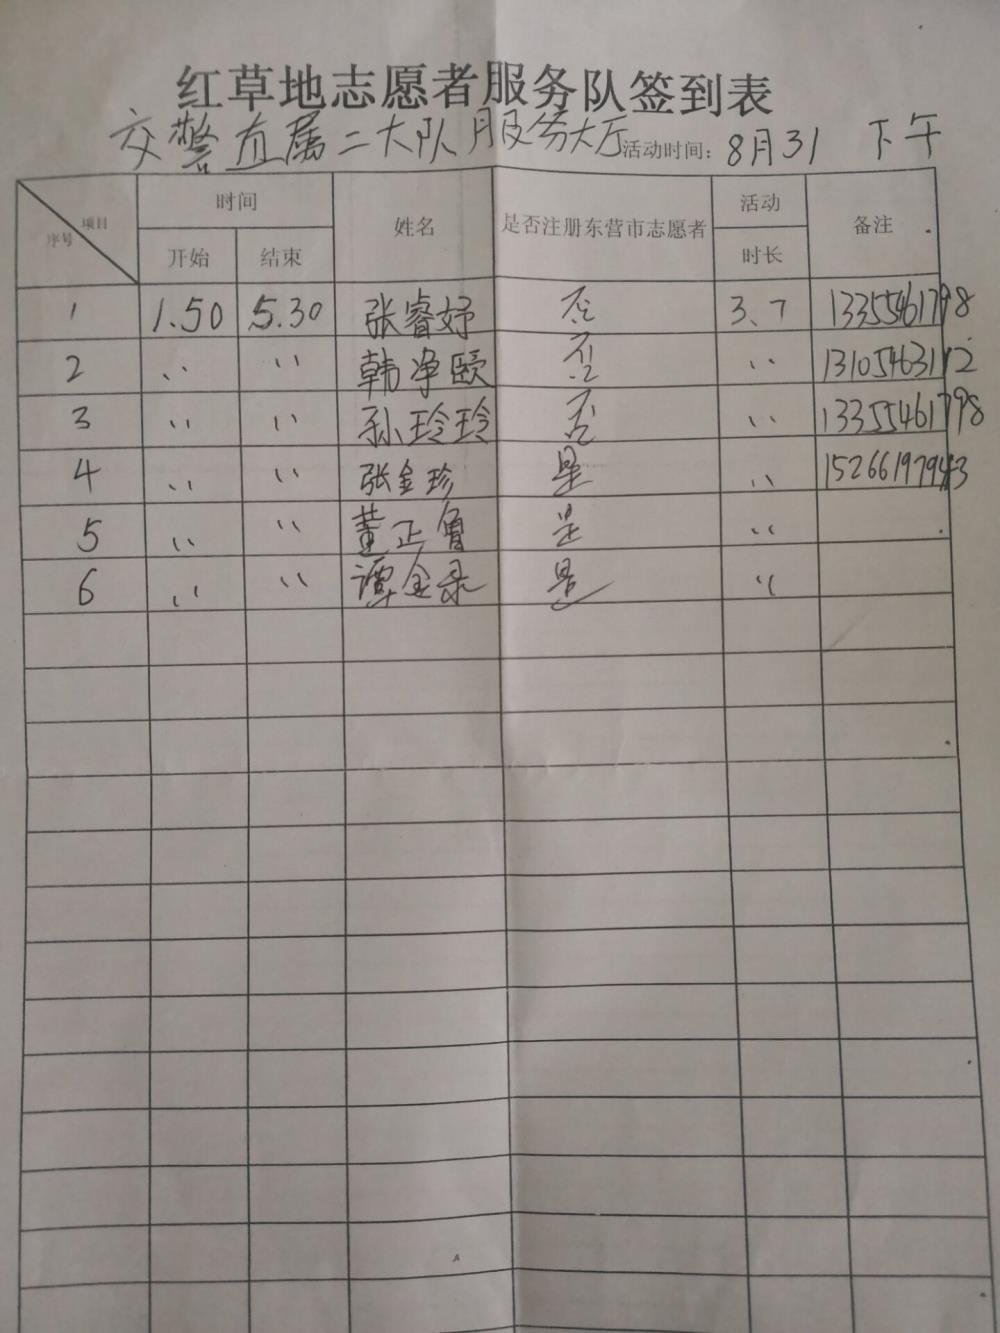 红草地志愿者服务队签到表
交警直属二大队服务大厅 活动时间：8月31 下午
项目 序号 时间 姓名 是否注册东营市志愿者 活动 备注
开始 结束 时长
1 1.50 5.30 张睿妤 否 3、7 13355461798
2 〃 〃 韩净颐 否 〃 13105463112
3 〃 〃 孙玲玲 否 〃 13355461798
4 〃 〃 张金珍 是 〃 15266197943
5 〃 〃 董正鲁 是 〃
6 〃 〃 谭金录 是 〃